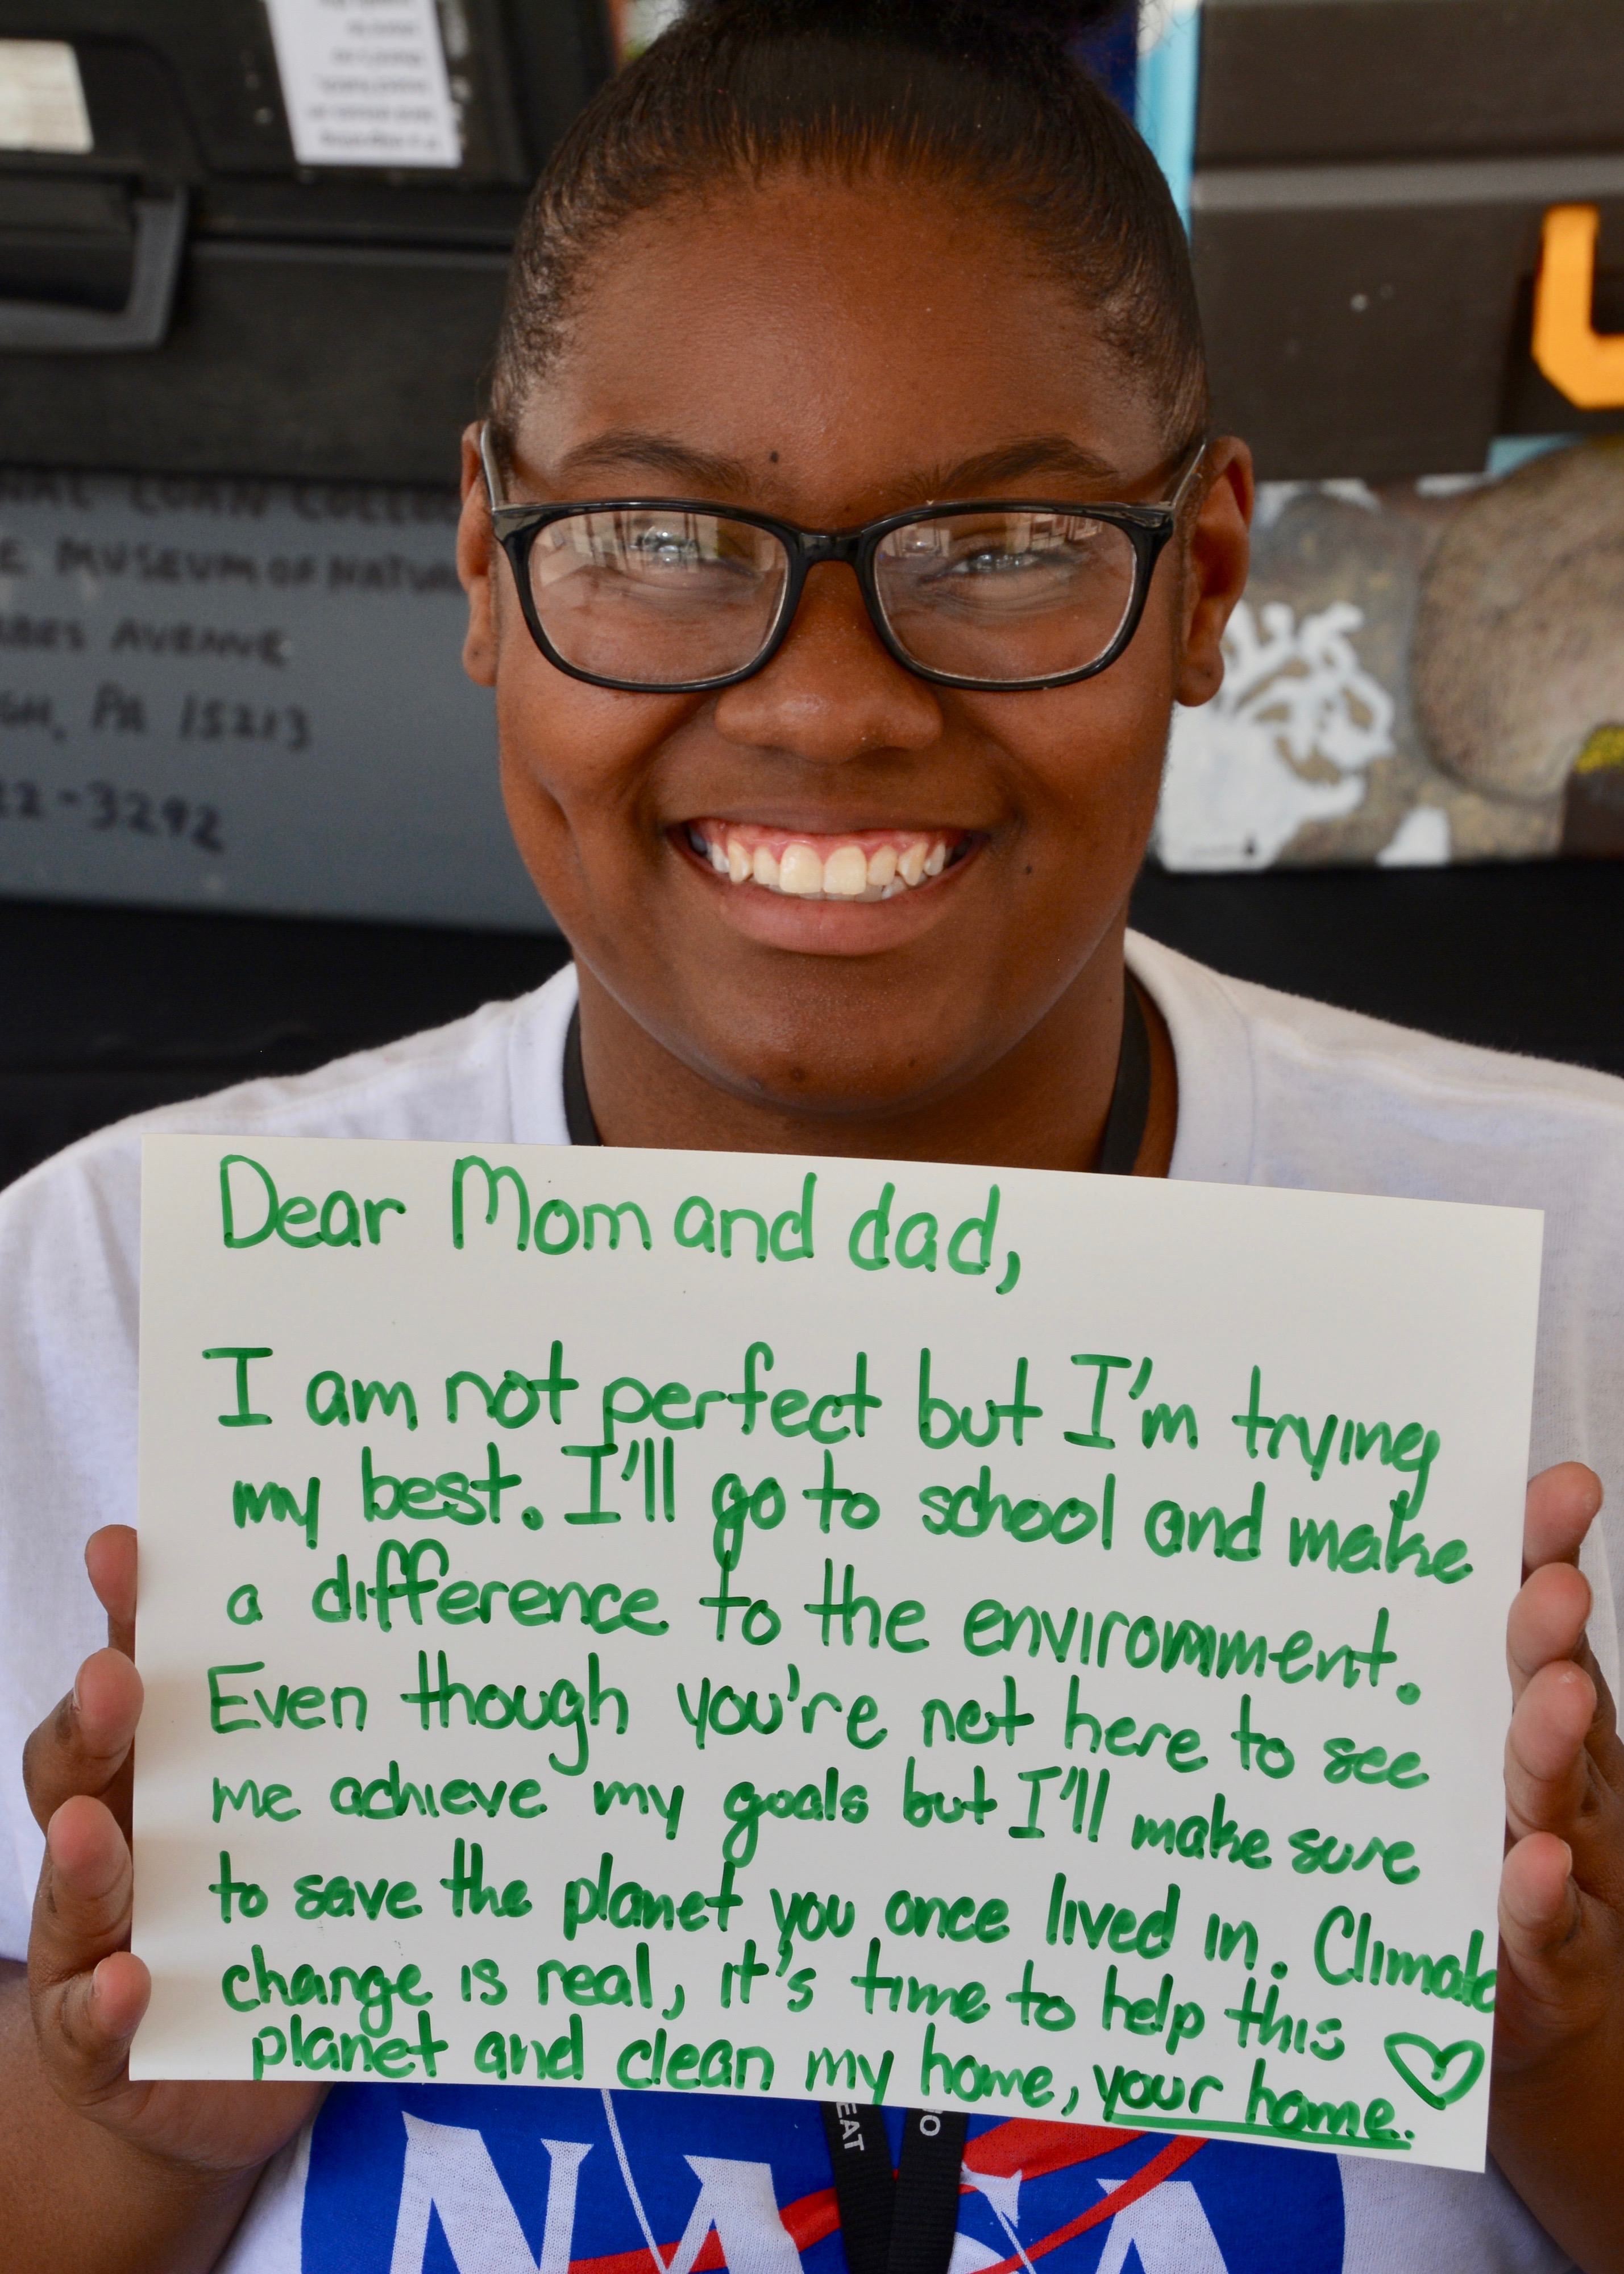 MUSEUM OF NATU
AVENUE
PA 15213
22-3292
Dear Mom and dad,
I am not perfect but I'm trying
my best. I'll go to school and make
a difference to the enviromment.
Even though you're not here to see
me achieve my goals but I'll make sure
to save the planet you once lived in. Climate
change is real, it's time to help this
planet and clean my home, your home.
EAT
NO
NASA